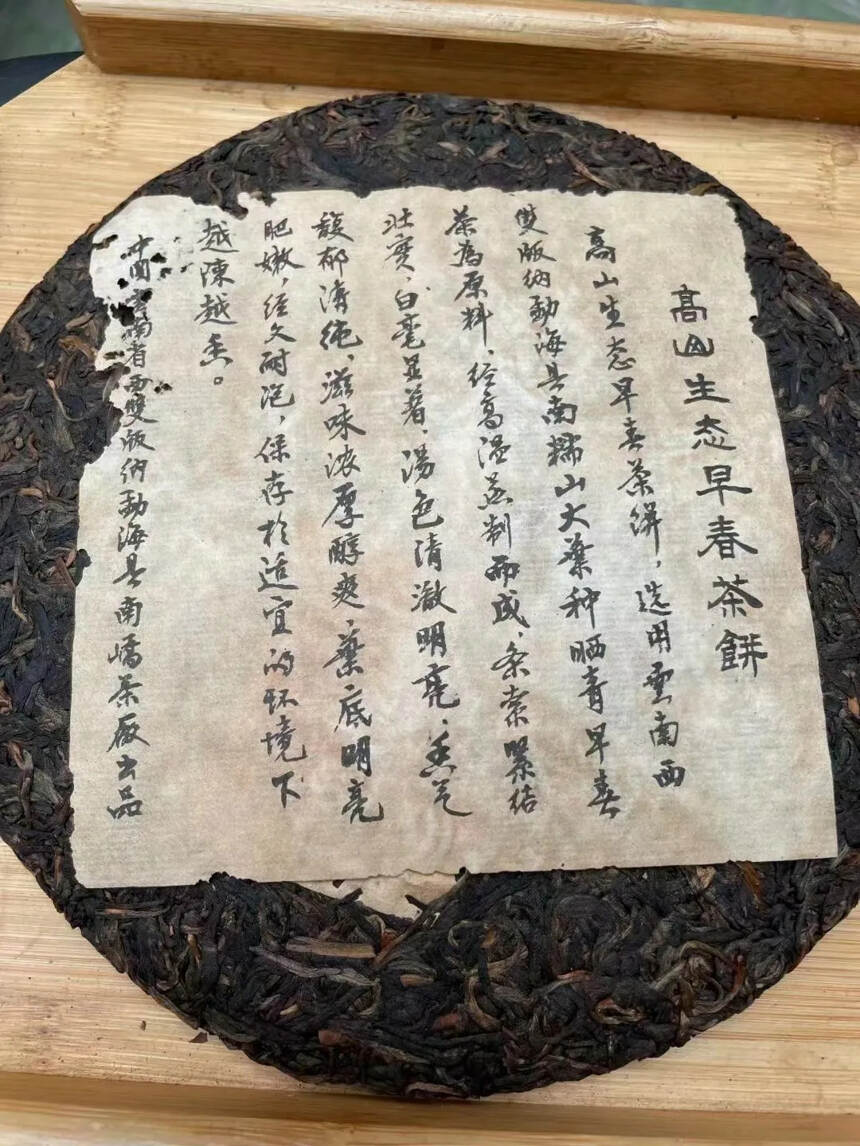 高山生态早春茶餅
高山生态早春茶餅，选用雲南西
雙版纳勐海县南糯山大葉种晒青早春
茶為原料，经高温蒸制而成，条索緊结
壮实，白毫显著，湯色清澈明亮，香气
馥郁清纯，滋味浓厚醇爽，葉底明亮
肥嫩，经久耐泡，保存於适宜的环境下
越陳越香。
中国雲南省西雙版纳勐海县南嶠茶廠出品